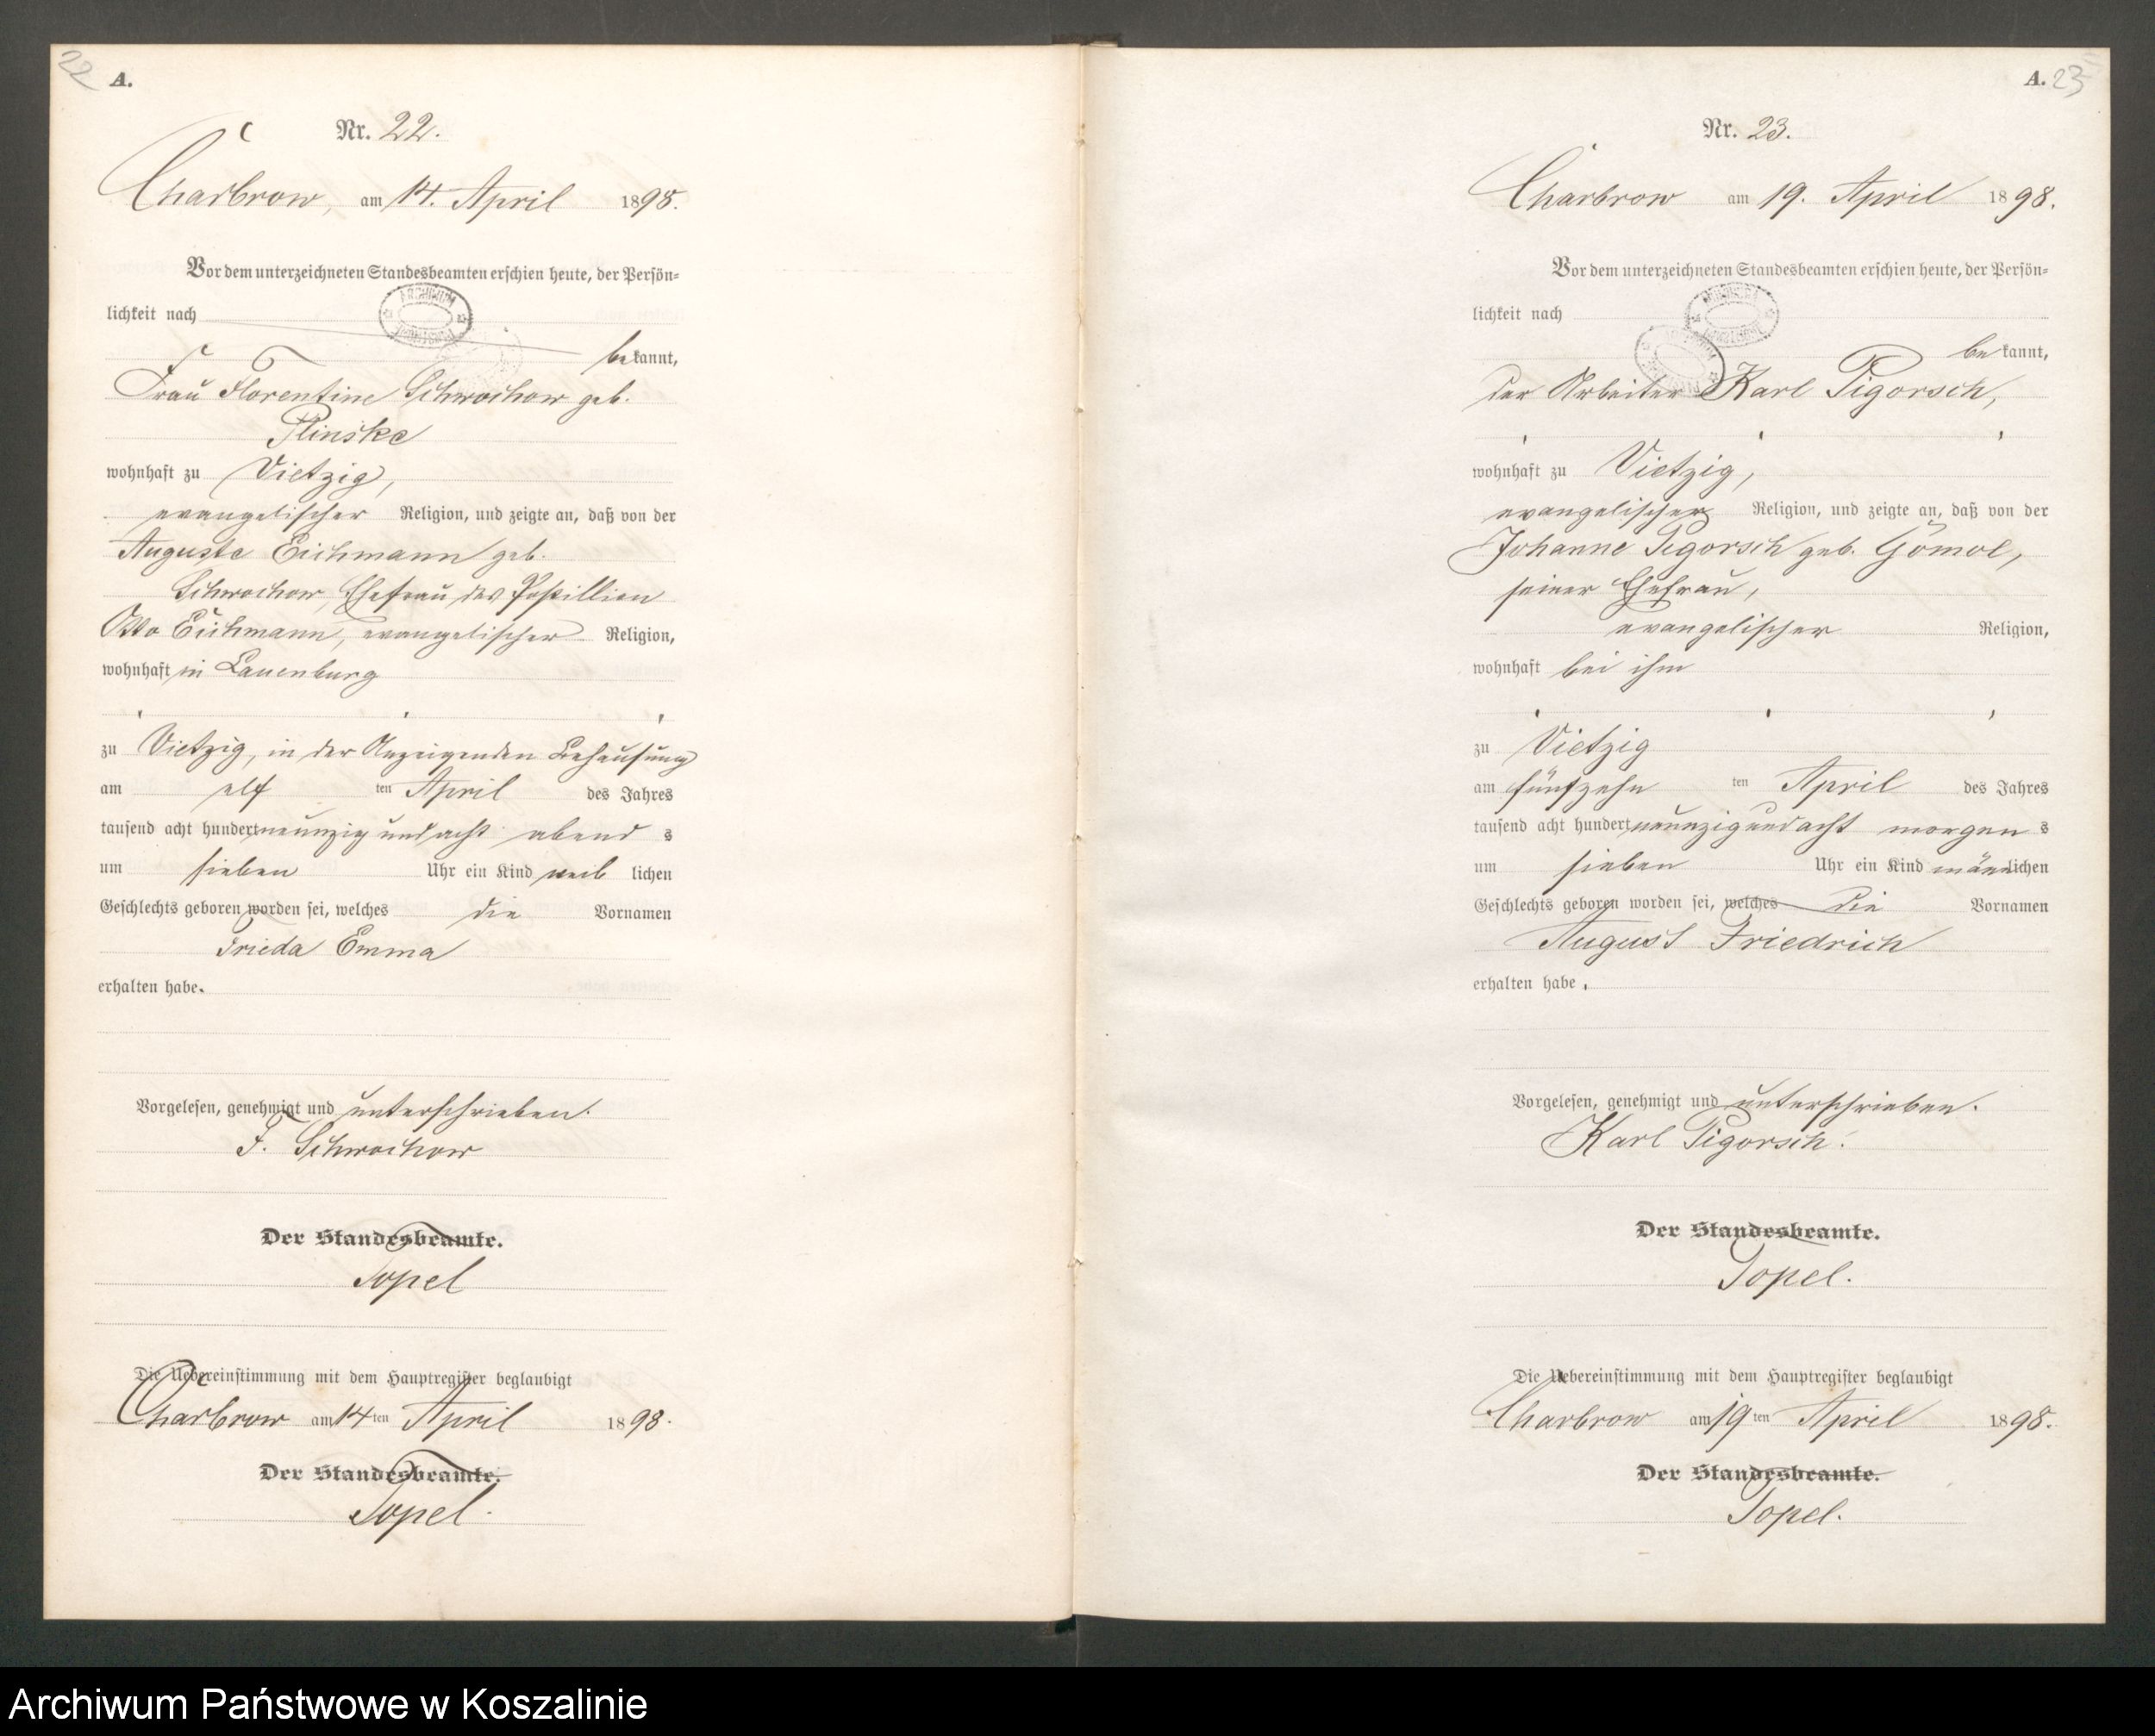 22
A.
Nr. 22.
Charbrow, am 14. April 1898.
Vor dem unterzeichneten Standesbeamten erschien heute, der Persön=
lichkeit nach
bekannt,
Frau Florentine Schwochow geb.
Plinske
wohnhaft zu Vietzig,
evangelischer Religion, und zeigte an, daß von der
Auguste Eichmann geb.
Schwochow, Ehefrau des Postillion
Otto Eichmann, evangelischer Religion,
wohnhaft in Lauenburg
zu Vietzig, in der Anzeigenden Behausung
am elf ten April des Jahres
tausend acht hundert neunzig und acht abend s
um sieben Uhr ein Kind weib lichen
Geschlechts geboren worden sei, welches die Vornamen
Frieda Emma
erhalten habe.
Vorgelesen, genehmigt und unterschrieben.
F. Schwochow
Der Standesbeamte.
Topel
Die Uebereinstimmung mit dem Hauptregister beglaubigt
Charbrow am 14 ten April 1898.
Der Standesbeamte.
Topel.
A. 23
Nr. 23.
Charbrow am 19. April 1898.
Vor dem unterzeichneten Standesbeamten erschien heute, der Persön=
lichkeit nach
bekannt,
der Arbeiter Karl Pigorsch,
wohnhaft zu Vietzig,
evangelischer Religion, und zeigte an, daß von der
Johanne Pigorsch geb. Gomol,
seiner Ehefrau,
evangelischer Religion,
wohnhaft bei ihm
zu Vietzig
am fünfzehn ten April des Jahres
tausend acht hundert neunzig und acht morgen s
um sieben Uhr ein Kind männlichen
Geschlechts geboren worden sei, welches die Vornamen
August Friedrich
erhalten habe.
Vorgelesen, genehmigt und unterschrieben.
Karl Pigorsch.
Der Standesbeamte.
Topel.
Die Uebereinstimmung mit dem Hauptregister beglaubigt
Charbrow am 19 ten April 1898.
Der Standesbeamte.
Topel.
Archiwum Państwowe w Koszalinie